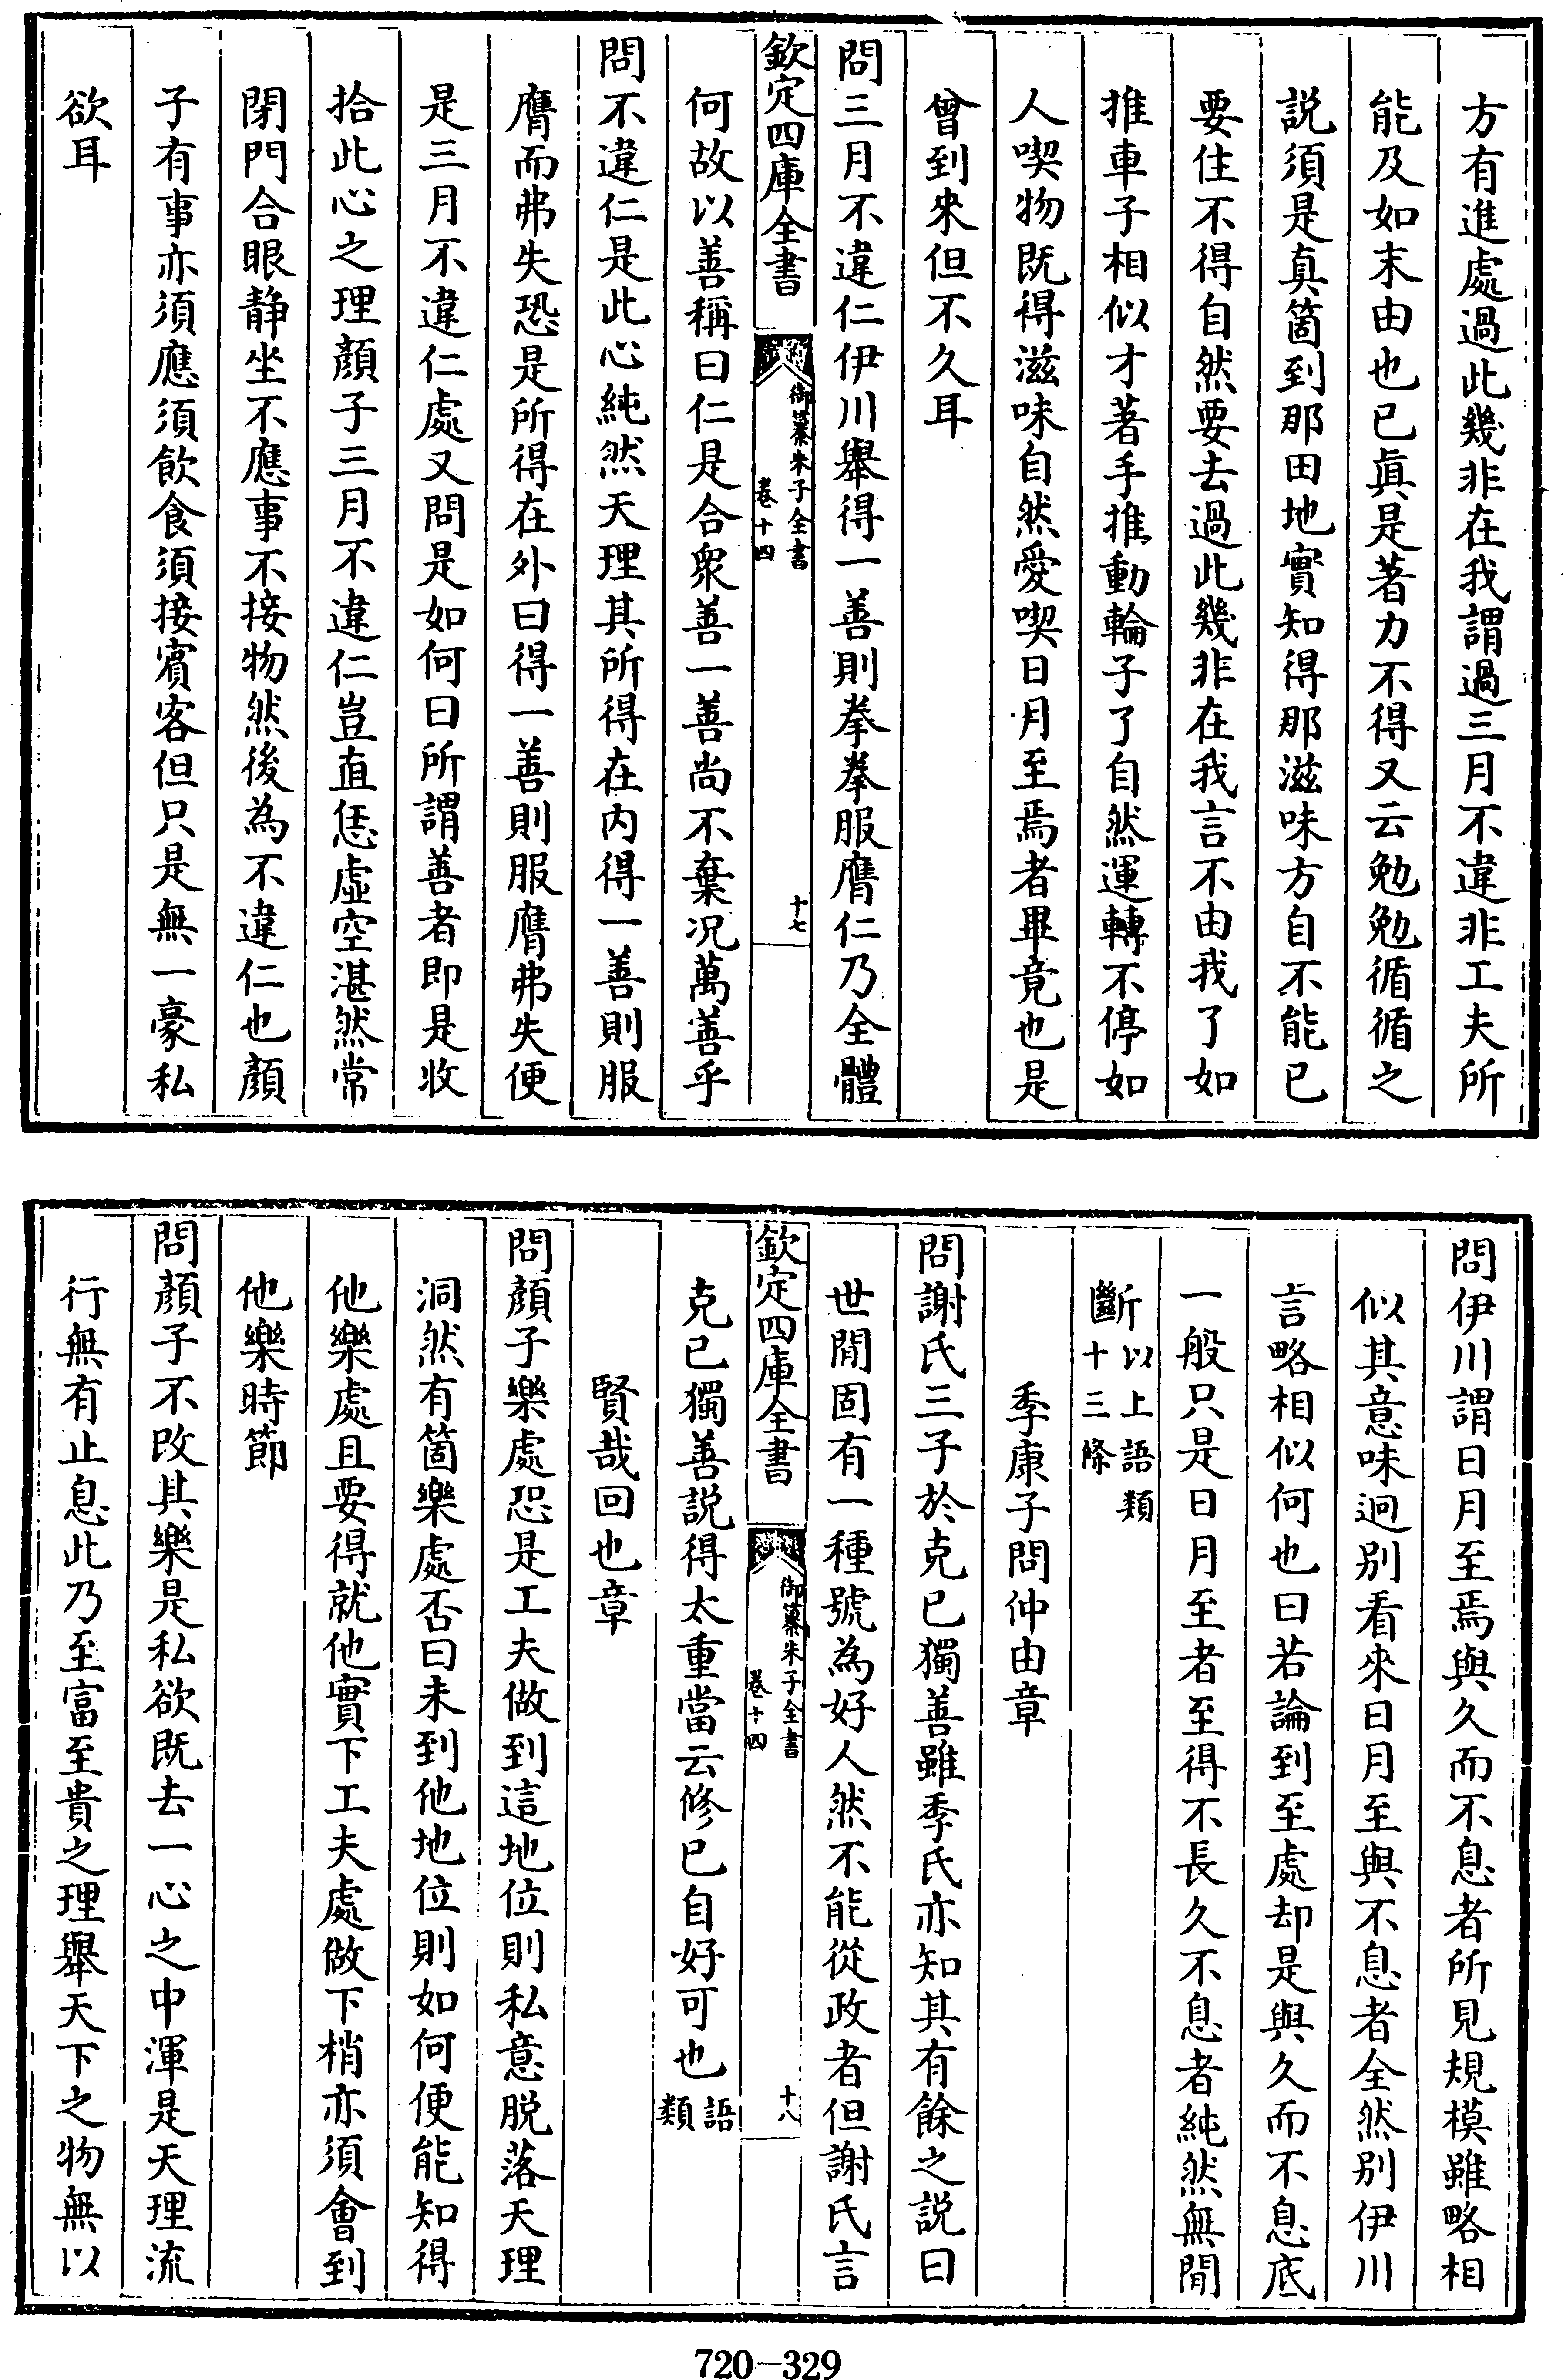 方有進處過此幾非在我謂過三月不違非工夫所
能及如末由也已真是著力不得又云勉勉循循之
説須是真箇到那田地實知得那滋味方自不能已
要住不得自然要去過此幾非在我言不由我了如
推車子相似才著手推動輪子了自然運轉不停如
人喫物既得滋味自然愛喫日月至焉者畢竟也是
曾到來但不久耳
問三月不違仁伊川舉得一善則拳拳服膺仁乃全體
欽定四庫全書
御纂朱子全書
卷十四
十七
何故以善稱曰仁是合衆善一善尚不棄况萬善乎
問不違仁是此心純然天理其所得在内得一善則服
膺而弗失恐是所得在外曰得一善則服膺弗失便
是三月不違仁處又問是如何曰所謂善者即是收
拾此心之理顔子三月不違仁豈直恁虛空湛然常
閉門合眼静坐不應事不接物然後為不違仁也顔
子有事亦須應須飲食須接賓客但只是無一豪私
欲耳
問伊川謂日月至焉與久而不息者所見規模雖略相
似其意味迥别看來日月至與不息者全然别伊川
言略相似何也曰若論到至處却是與久而不息底
一般只是日月至者至得不長久不息者純然無間
斷以上語類
十三條
季康子問仲由章
問謝氏三子於克已獨善雖季氏亦知其有餘之説曰
世間固有一種號為好人然不能從政者但謝氏言
欽定四庫全書
御纂朱子全書
卷十四
十八
克已獨善説得太重當云修已自好可也語類
賢哉回也章
問顔子樂處恐是工夫做到這地位則私意脱落天理
洞然有箇樂處否曰未到他地位則如何便能知得
他樂處且要得就他實下工夫處做下梢亦須會到
他樂時節
問顔子不改其樂是私欲既去一心之中渾是天理流
行無有止息此乃至富至貴之理舉天下之物無以
720-329